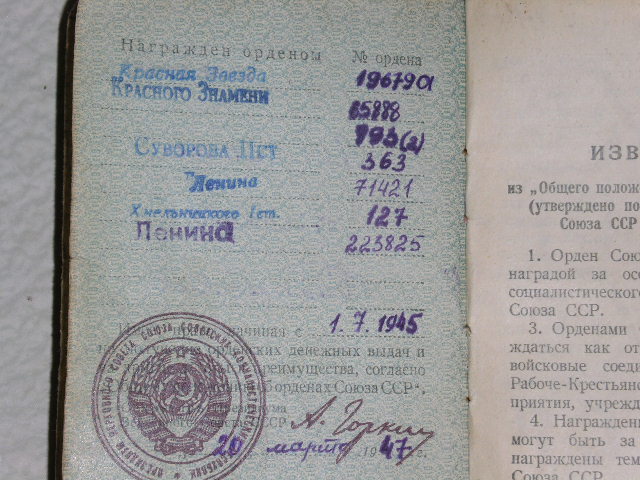 Награжден орденом № ордена
Красная Звезда 196790
Красного Знамени
65888
Суворова IIст 363
Ленина 71421
Хмельницкого Iст. 127
Ленина 223825
начиная 1.7.1945
денежных выдач и
преимущества, согласно
орденах Союза ССР".
А. Горкин
20 марта 1947 г.
ИЗВ
из „Общего полож
(утверждено по
Союза ССР
1. Орден Сою
наградой за осо
социалистического
Союза ССР.
3. Орденами
ждаться как от
войсковые соеди
Рабоче-Крестьянс
приятия, учрежд
4. Награжденн
могут быть за
награждены тем
Союза ССР.